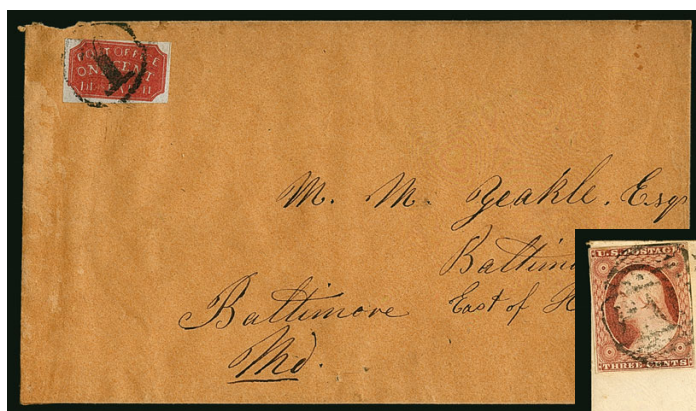 POST OFFICE
ONE CENT
DESPATCH
1
M. M. Yeakle. Esqr
Baltim
East of H
Baltimore
Md.
U.S. POSTAG
THREE CENTS
1